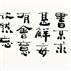 書不求
甚解每
有會意
欣然忘